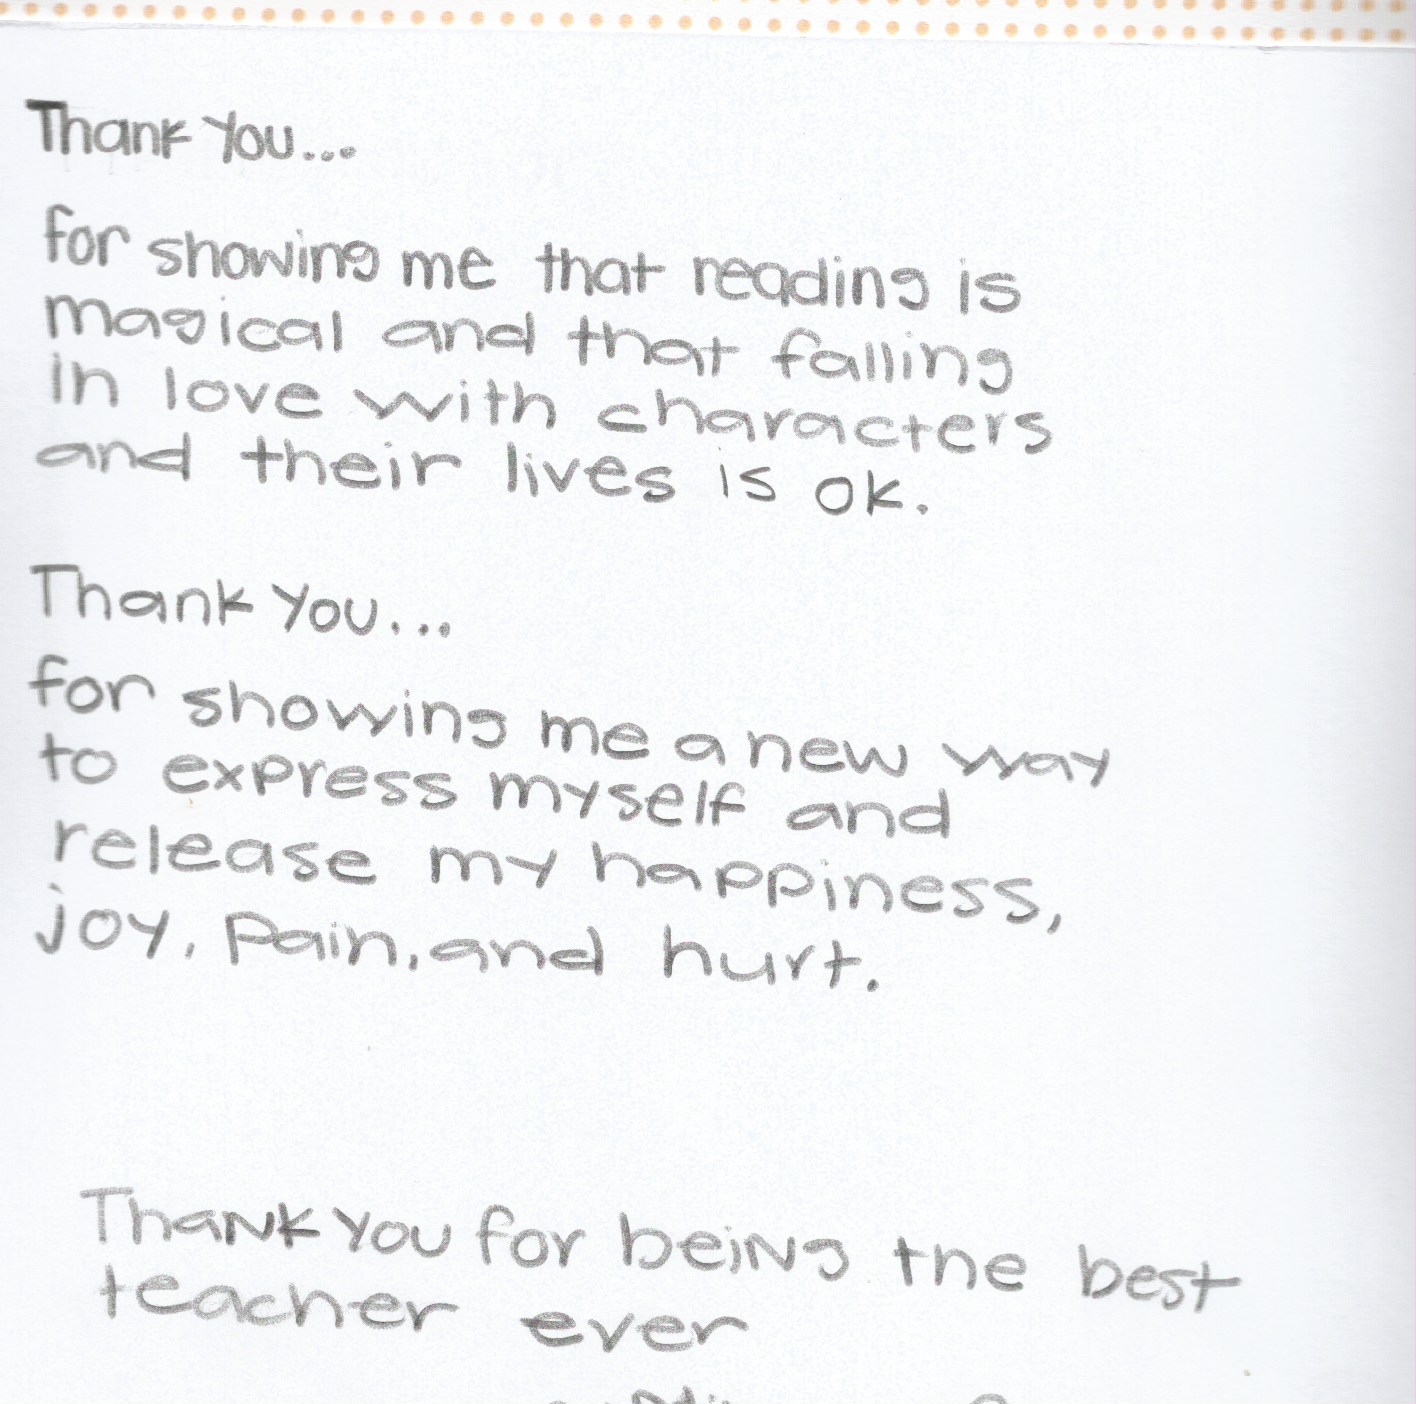 Thank You...
for showing me that reading is
magical and that falling
in love with characters
and their lives is ok.
Thank You...
for showing me a new way
to express myself and
release my happiness,
joy, Pain, and hurt.
Thank You for being the best
teacher ever